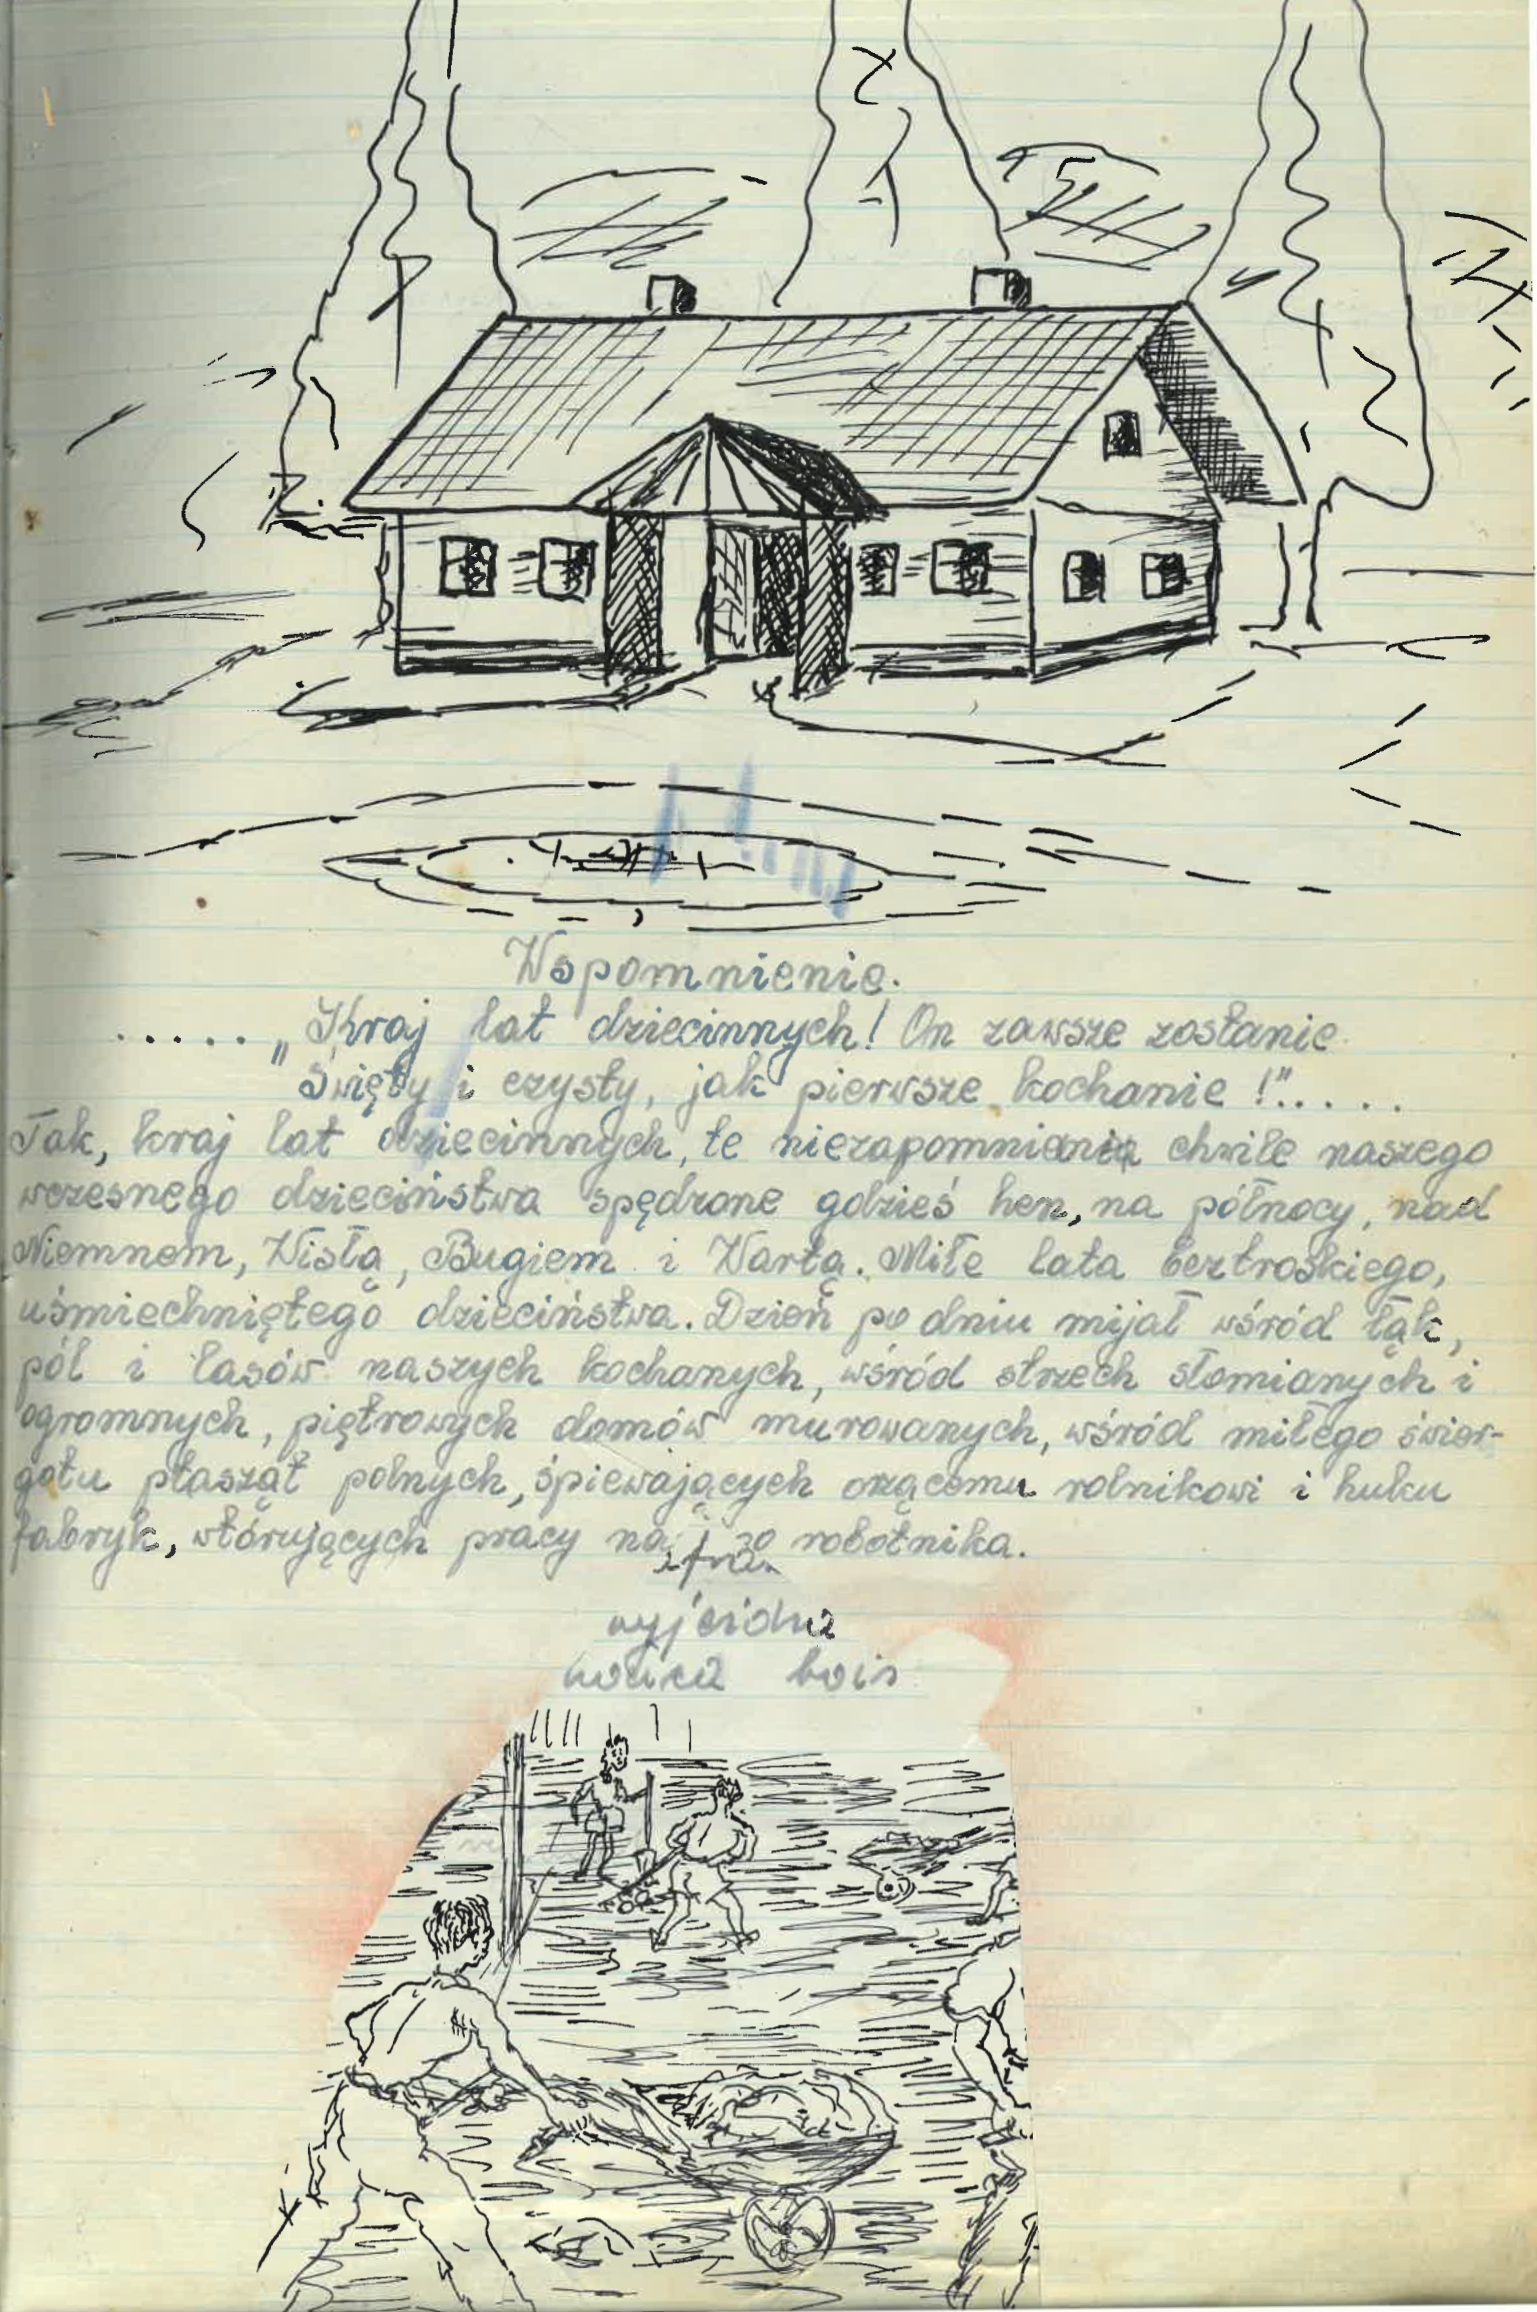 Wspomnienie.
..... „Kraj lat dziecinnych! On zawsze zostanie
Święty i czysty, jak pierwsze kochanie!".....
Tak, kraj lat dziecinnych, te niezapomniane chwile naszego
wczesnego dzieciństwa spędzone gdzieś hen, na północy, nad
Niemnem, Wisłą, Bugiem i Wartą. Miłe lata beztroskiego,
uśmiechniętego dzieciństwa. Dzień po dniu mijał wśród łąk,
pól i lasów naszych kochanych, wśród strzech słomianych i
ogromnych, piętrowych domów murowanych, wśród miłego świer-
gotu ptasząt polnych, śpiewających orzącemu rolnikowi i huku
fabryk, wtórujących pracy robotnika.